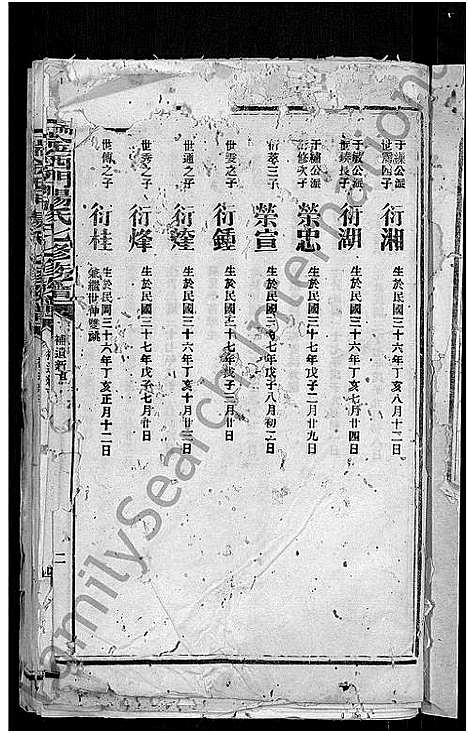 世霑四子
衍湘 生於民國三十六年丁亥八月十二日
于敏公派
長子
衍湖 生於民國三十六年丁亥七月廿四日
于繡公派
修次子
榮忠 生於民國三十七年戊子二月廿九日
衍萃三子
榮宣 生於民國三十七年戊子八月初二日
世雯之子
衍鍾 生於民國三十七年戊子二月廿日
世通之子
衍籛 生於民國三十六年丁亥十月廿三日
世秀之子
衍烽 生於民國三十七年戊子七月廿日
世傳之子
衍桂 生於民國三十六年丁亥正月十二日
兼繼世伸雙祧
楊氏七修族譜
補遺新丁
二
FamilySearch International